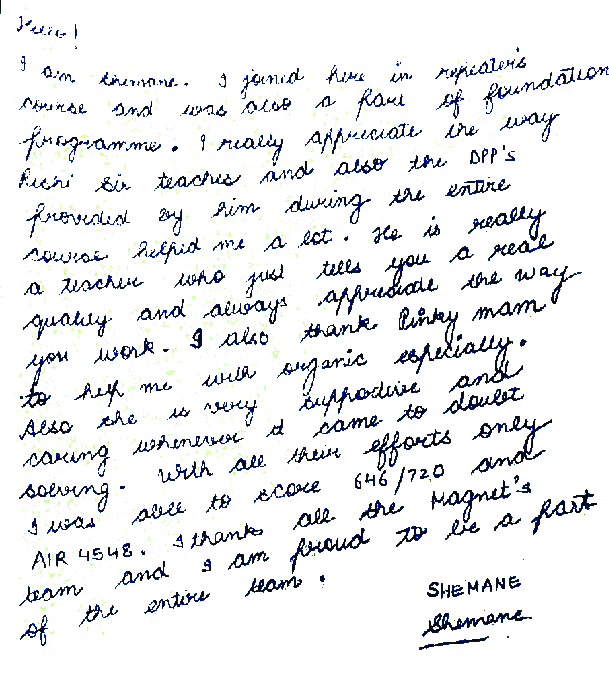 Hello!
I am Shemane. I joined here in repeater's
course and was also a part of foundation
programme. I really appreciate the way
Richi Sir teaches and also the DPP's
provided by him during the entire
course helped me a lot. He is really
a teacher who just tells you a real
quality and always appreciate the way
you work. I also thank Pinky mam
to help me with organic especially.
Also she is very supportive and
caring whenever it came to doubt
solving. With all their efforts only
I was able to score 646/720 and
AIR 4548. I thank all the Magnet's
team and I am proud to be a part
of the entire team.
SHEMANE
Shemane